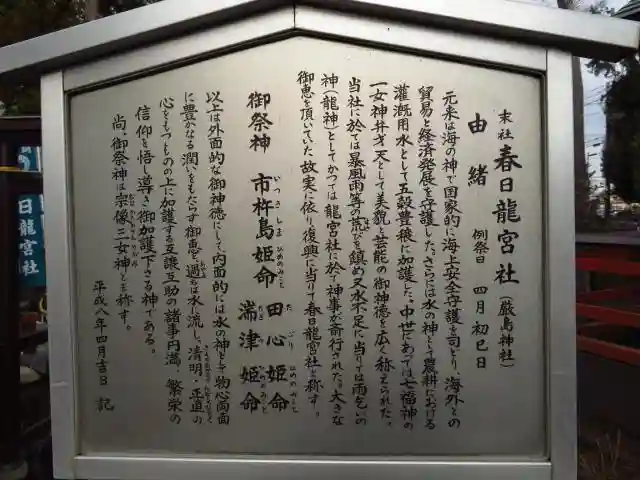 末社 春日龍宮社 (厳島神社)
由緒 例祭日 四月初巳日
元来は海の神で国家的に海上安全守護を司どり、海外との
貿易と経済発展を守護した。さらには水の神として農耕における
灌漑用水として五穀豊穣に加護した、中世にあっては七福神の
一女神弁才天として美貌と芸能の御神徳を広く称えられた。
当社に於ては暴風雨等の荒びを鎮め又水不足に当りては雨乞いの
神(龍神)としてかつては龍宮社に於て神事が斎行された。大きな
御恵を頂いていた故実に依り復興に当りて春日龍宮社と称す。
御祭神 市杵島姫命 田心姫命
湍津姫命
いつきしまひめのみこと
たごりひめのみこと
以上は外面的な御神徳にして内面的には水の神として物心両面
に豊かなる潤いをもたらす御恵を、過ちは水に流し、清明・正直の
心をもつものの上に加護する互譲互助の諸事円満、繁栄の
信仰を悟し導き御加護下さる神である。
尚、御祭神は宗像三女神とも称す。
平成八年四月吉日 記
日龍宮社